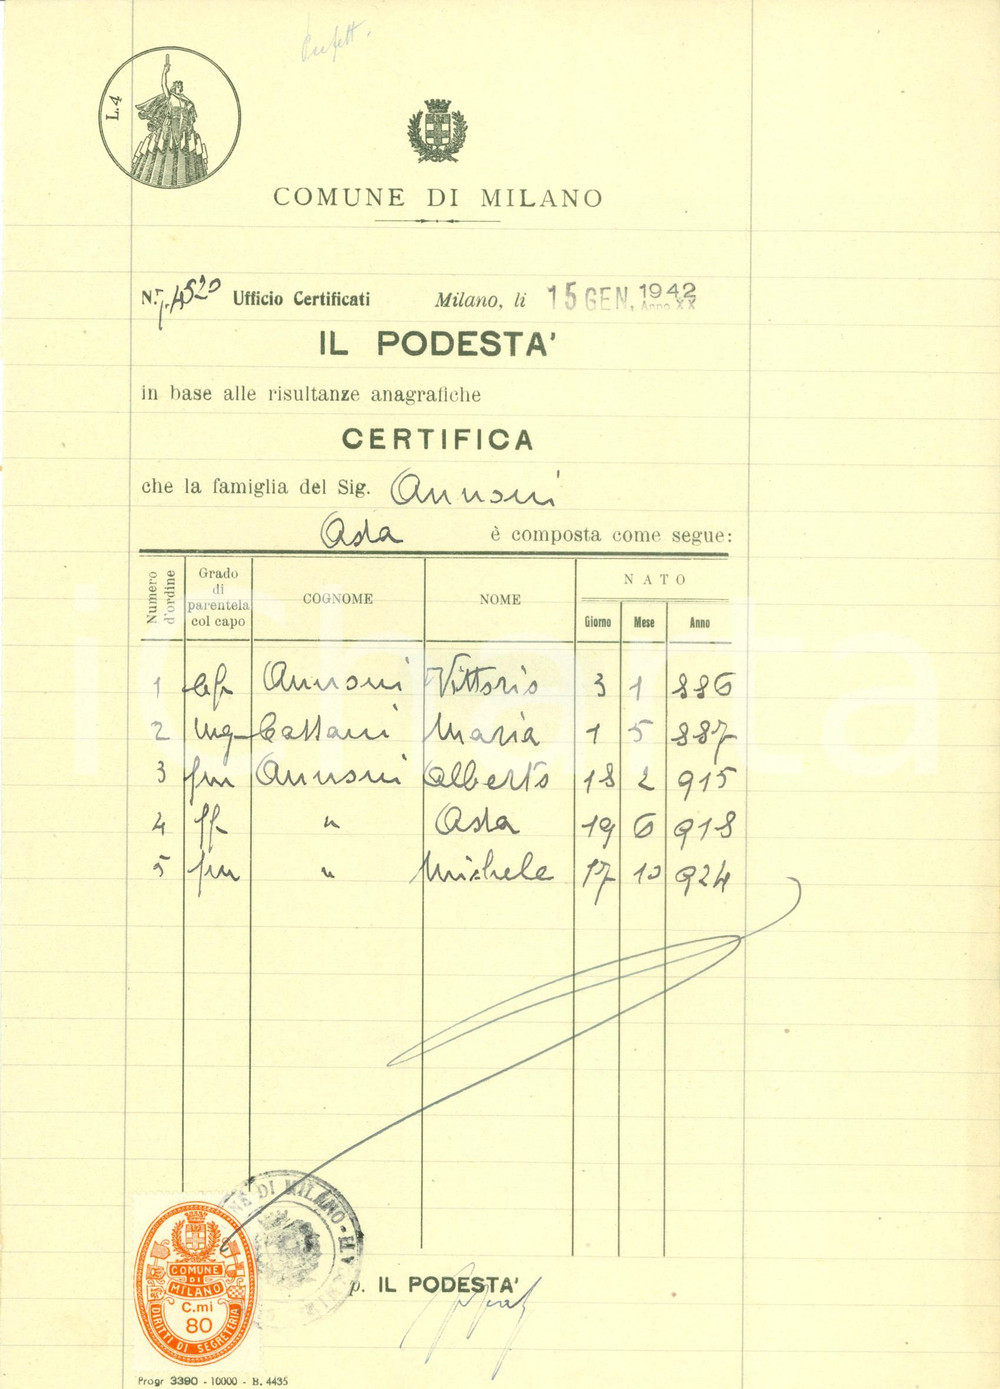 L.4
COMUNE DI MILANO
N. 4520 Ufficio Certificati Milano, li 15 GEN. 1942
Anno XX
IL PODESTA'
in base alle risultanze anagrafiche
CERTIFICA
che la famiglia del Sig. Annoni
Ada è composta come segue:
Numero d'ordine Grado di parentela col capo COGNOME NOME NATO
Giorno Mese Anno
1 Annoni Vittorio 3 1 886
2 mg Cattani Maria 1 5 887
3 fm Annoni Alberto 18 2 915
4 ff " Ada 19 6 918
5 fm " Michele 17 10 924
COMUNE DI MILANO
COMUNE
DI
MILANO
C.mi
80
DIRITTI DI SEGRETERIA
p. IL PODESTA'
Progr 3390 - 10000 - B. 4435